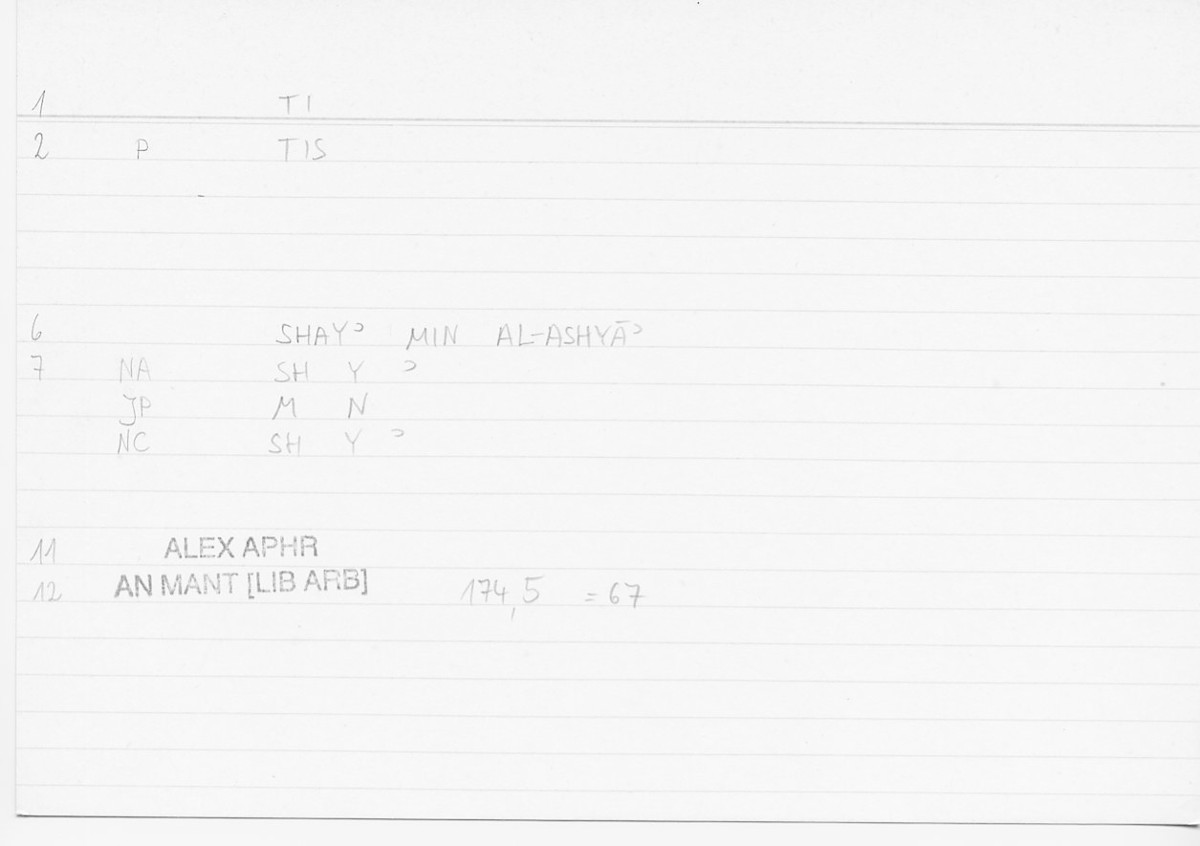 1 TI
2 P TIS
6 SHAYʾ MIN AL-ASHYĀʾ
7 NA SH Y ʾ
JP M N
NC SH Y ʾ
11 ALEX APHR
12 AN MANT [LIB ARB] 174,5 = 67